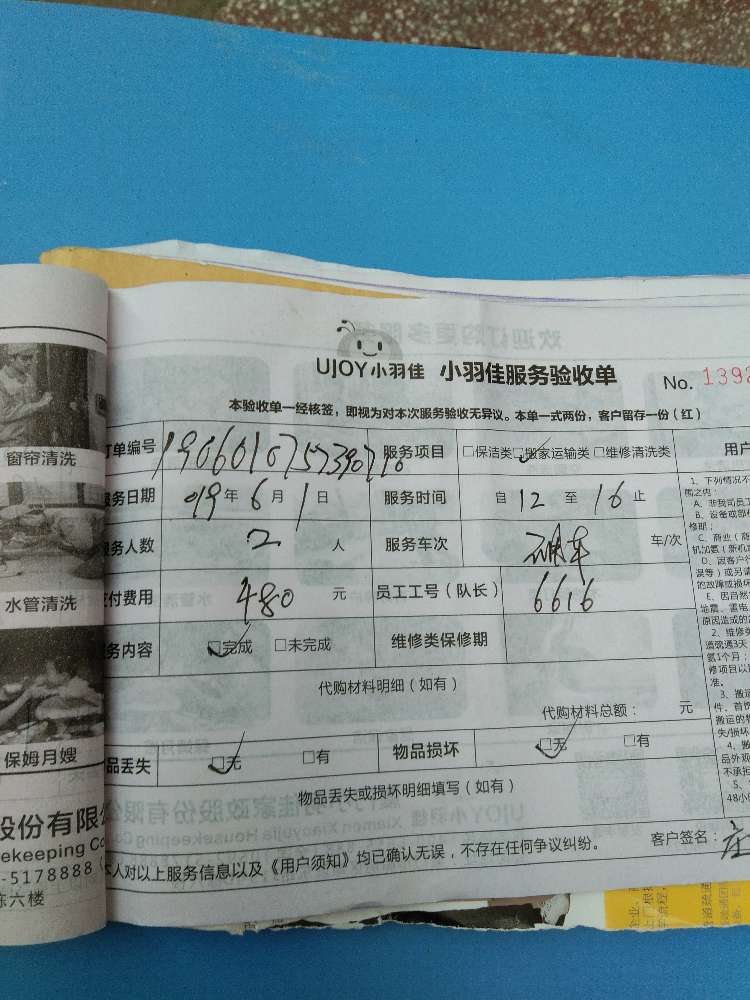 UJOY小羽佳 小羽佳服务验收单 No. 1392
本验收单一经核签，即视为对本次服务验收无异议。本单一式两份，客户留存一份（红）
订单编号 190601075739071 服务项目 □保洁类□搬家运输类□维修清洗类
服务日期 019年6月1日 服务时间 自12至16止
服务人数 2人 服务车次 车/次
应付费用 480元 员工工号（队长） 6616
服务内容 □完成 □未完成 维修类保修期
代购材料明细（如有）
代购材料总额： 元
品丢失 □无 □有 物品损坏 □无 □有
物品丢失或损坏明细填写（如有）
本人对以上服务信息以及《用户须知》均已确认无误，不存在任何争议纠纷。
客户签名：庄
窗帘清洗
水管清洗
保姆月嫂
股份有限公
ekeeping Co
-5178888
栋六楼
用户
1、下列情况不
围之内：
A、非我司员工
B、设备或部件
修期；
C、商业（商
机加氨（新机
D、因客户行
误等）或另请
的故障或损坏
E、因自然
地震、雷电、
原因造成的
2、维修
道疏通3天
氨1个月；
修项目以
准。
3、搬运
件、首饰
搬运的物
失/损坏
4、搬
品外观
不承担
5、
48小